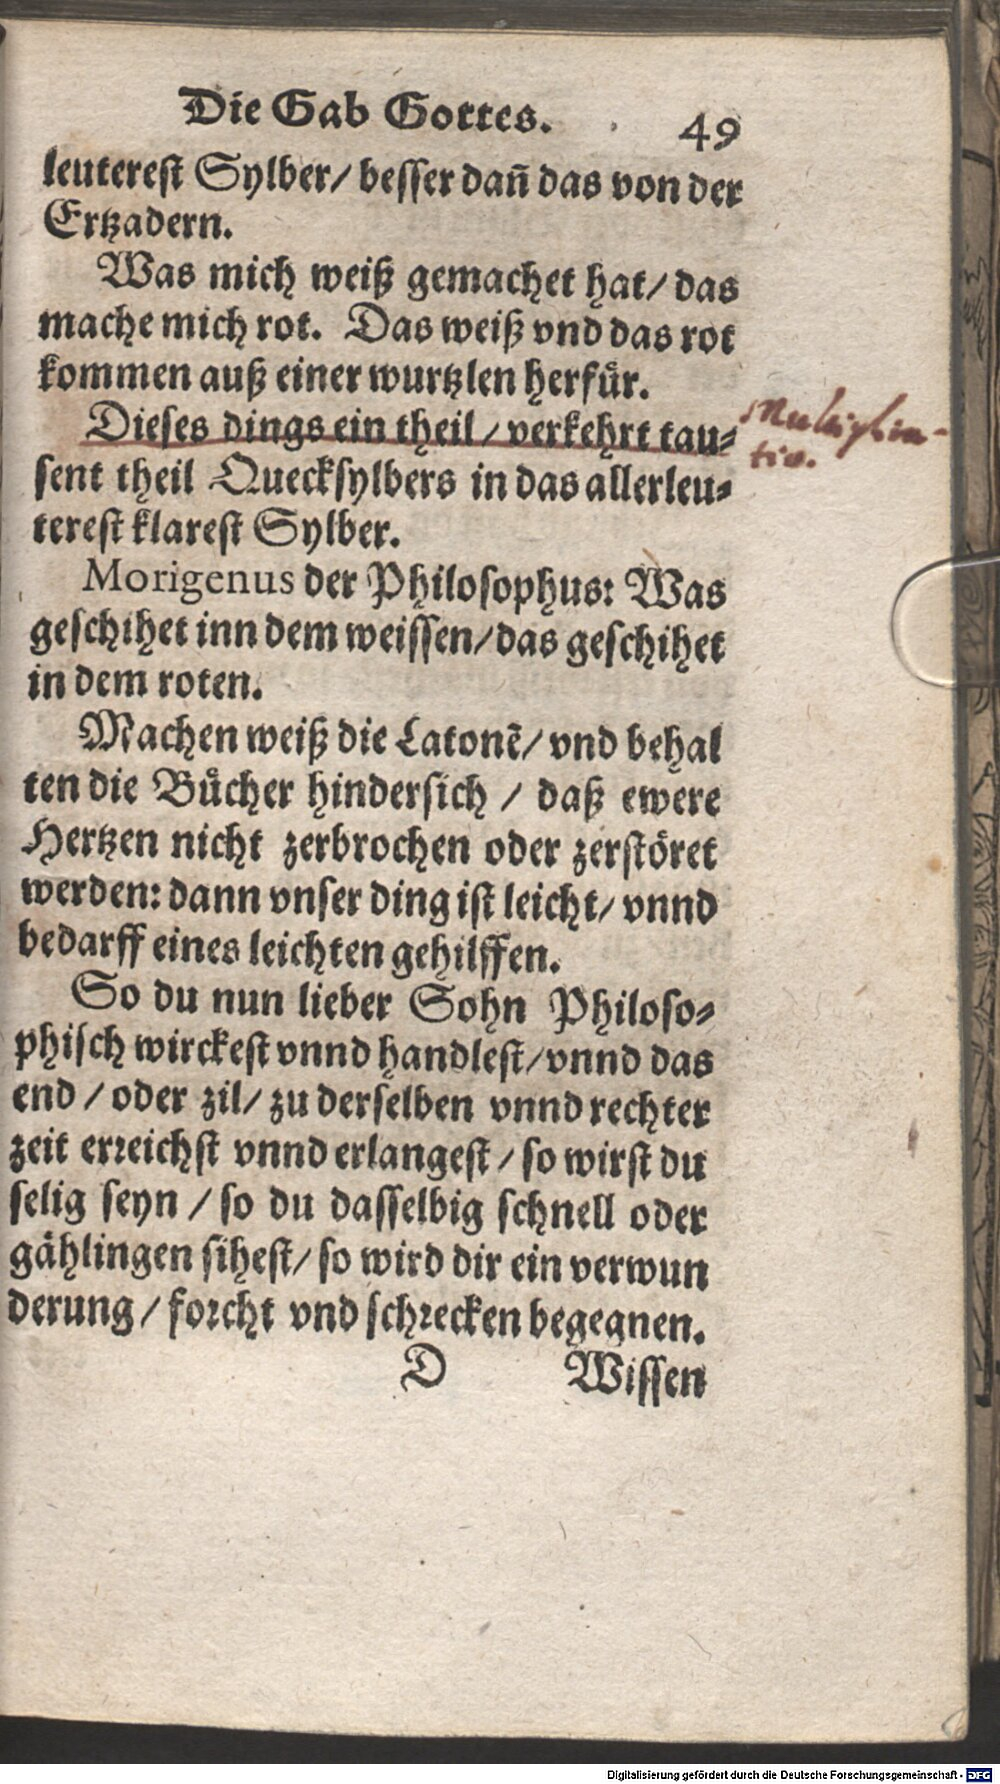 Die Gab Gottes. 49
leuterest Sylber/ besser dañ das von der
Ertzadern.
Was mich weiß gemachet hat/ das
mache mich rot. Das weiß vnd das rot
kommen auß einer wurtzlen herfuͤr.
Dieses dings ein theil/ verkehrt tau-
sent theil Quecksylbers in das allerleu-
terest klarest Sylber.
Multiplica-
tio.
Morigenus der Philosophus: Was
geschihet inn dem weissen/ das geschihet
in dem roten.
Machen weiß die Latonẽ/ vnd behal
ten die Buͤcher hindersich / daß ewere
Hertzen nicht zerbrochen oder zerstöret
werden: dann vnser ding ist leicht/ vnnd
bedarff eines leichten gehilffen.
So du nun lieber Sohn Philoso-
phisch wirckest vnnd handlest/ vnnd das
end / oder zil/ zu derselben vnnd rechter
zeit erreichst vnnd erlangest/ so wirst du
selig seyn / so du dasselbig schnell oder
gählingen sihest/ so wird dir ein verwun
derung / forcht vnd schrecken begegnen.
D Wissen
Digitalisierung gefördert durch die Deutsche Forschungsgemeinschaft - DFG